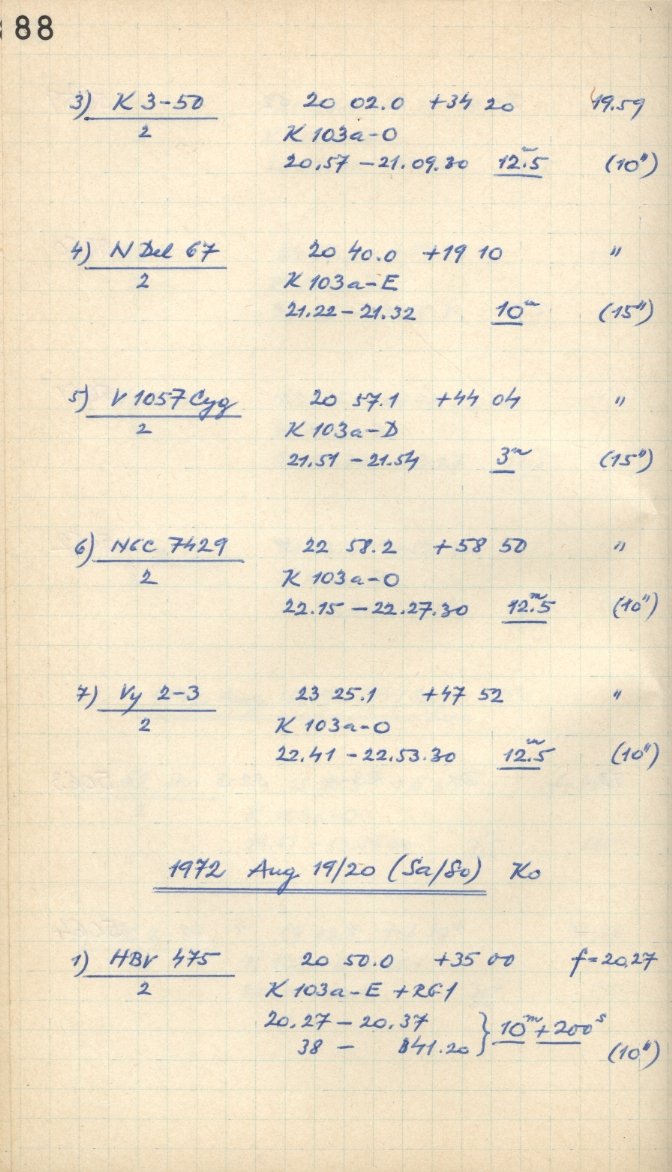 88
3) K 3-50 20 02.0 +34 20 19.59
2 K 103a-O
20.57 - 21.09.30 12.ᵐ5 (10")
4) N Del 67 20 40.0 +19 10 "
2 K 103a-E
21.22 - 21.32 10ᵐ (15")
5) V 1057 Cyg 20 57.1 +44 04 "
2 K 103a-D
21.51 - 21.54 3ᵐ (15")
6) NGC 7429 22 58.2 +58 50 "
2 K 103a-O
22.15 - 22.27.30 12.ᵐ5 (10")
7) Vy 2-3 23 25.1 +47 52 "
2 K 103a-O
22.41 - 22.53.30 12.ᵐ5 (10")
1972 Aug 19/20 (Sa/So) Ko
1) HBV 475 20 50.0 +35 00 f=20.27
2 K 103a-E + RG1
20.27 - 20.37 } 10ᵐ+200ˢ
38 - 41.20 (10")